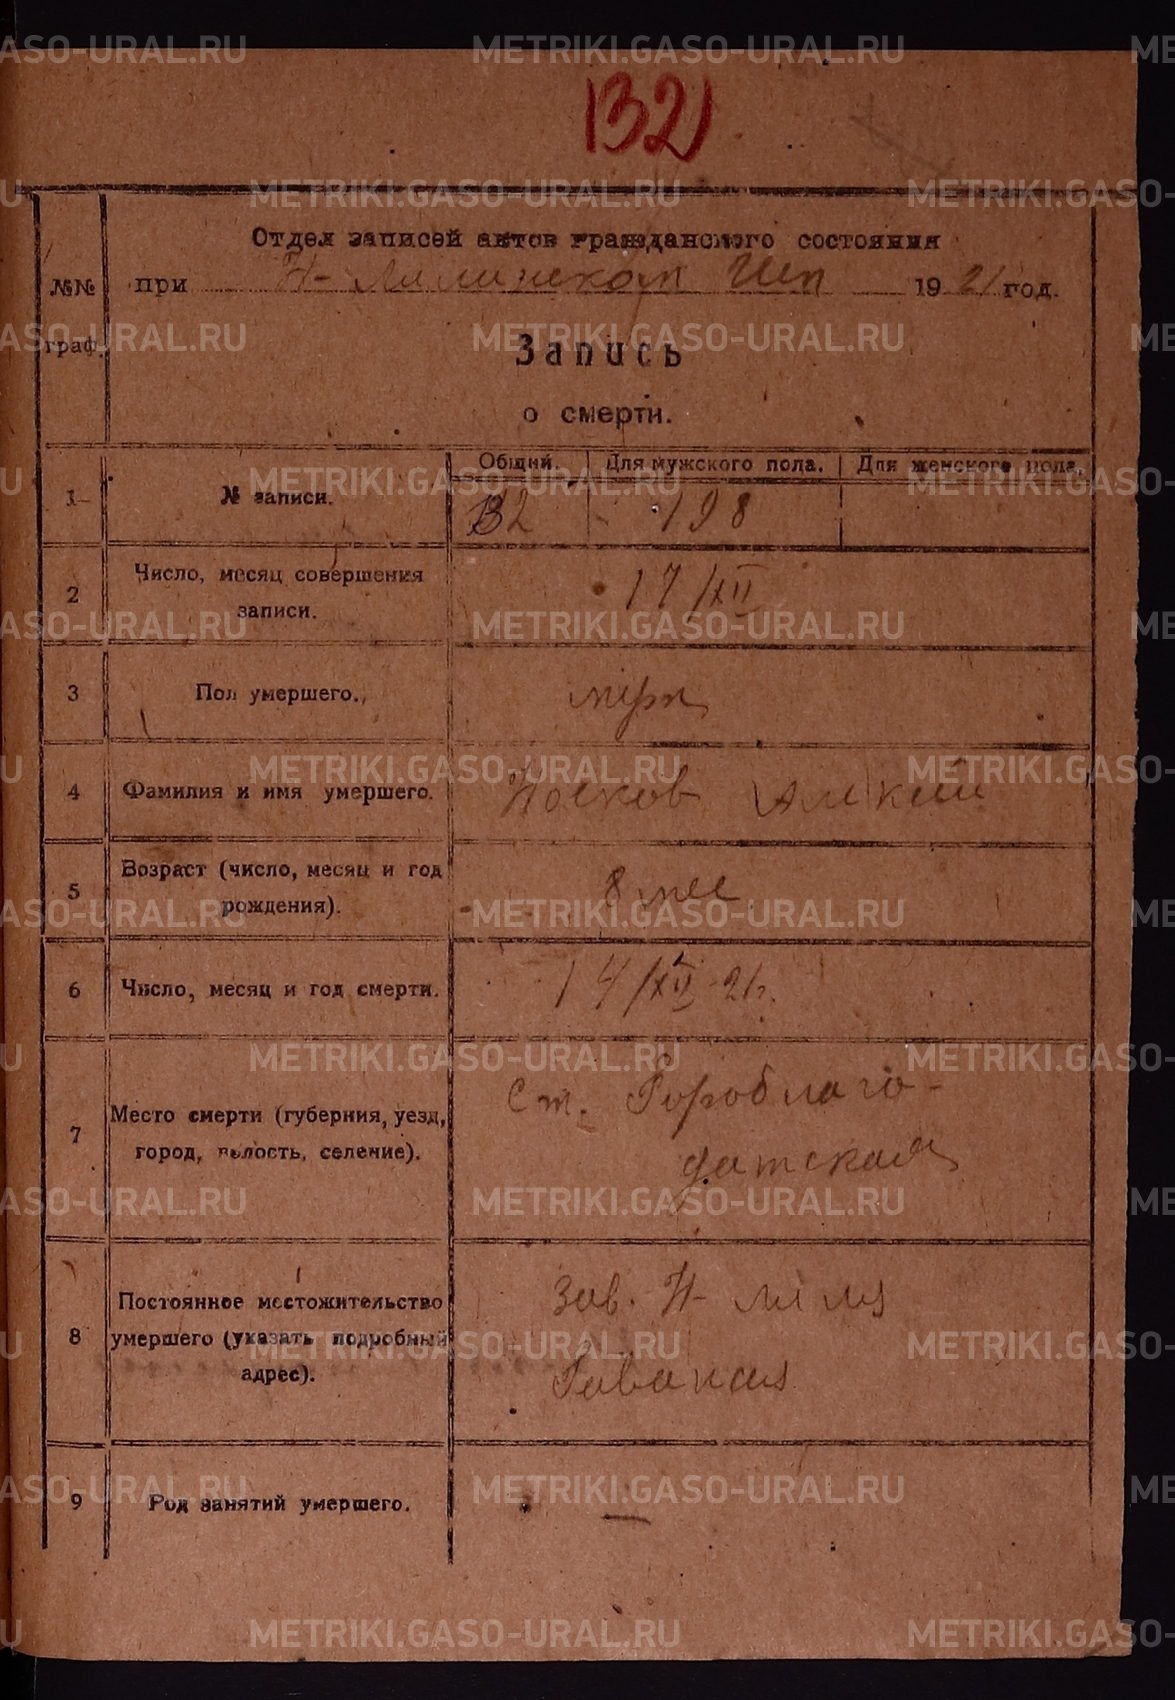 132
Отдел записей актов гражданского состояния
при Н-Лялинском Исп 1921 год.
№№ граф.
Запись
о смерти.
Общий. Для мужского пола. Для женского пола.
1 № записи. 132 198
2 Число, месяц совершения
записи.
17/XII
3 Пол умершего. муж
4 Фамилия и имя умершего. Носков Алексей
5 Возраст (число, месяц и год
рождения).
8 мес
6 Число, месяц и год смерти. 14/XII-21г.
7 Место смерти (губерния, уезд,
город, волость, селение).
Ст. Гороблаго-
датская
8 Постоянное местожительство
умершего (указать подробный
адрес).
Зав. Н-Ляля
9 Род занятий умершего. —
METRIKI.GASO-URAL.RU